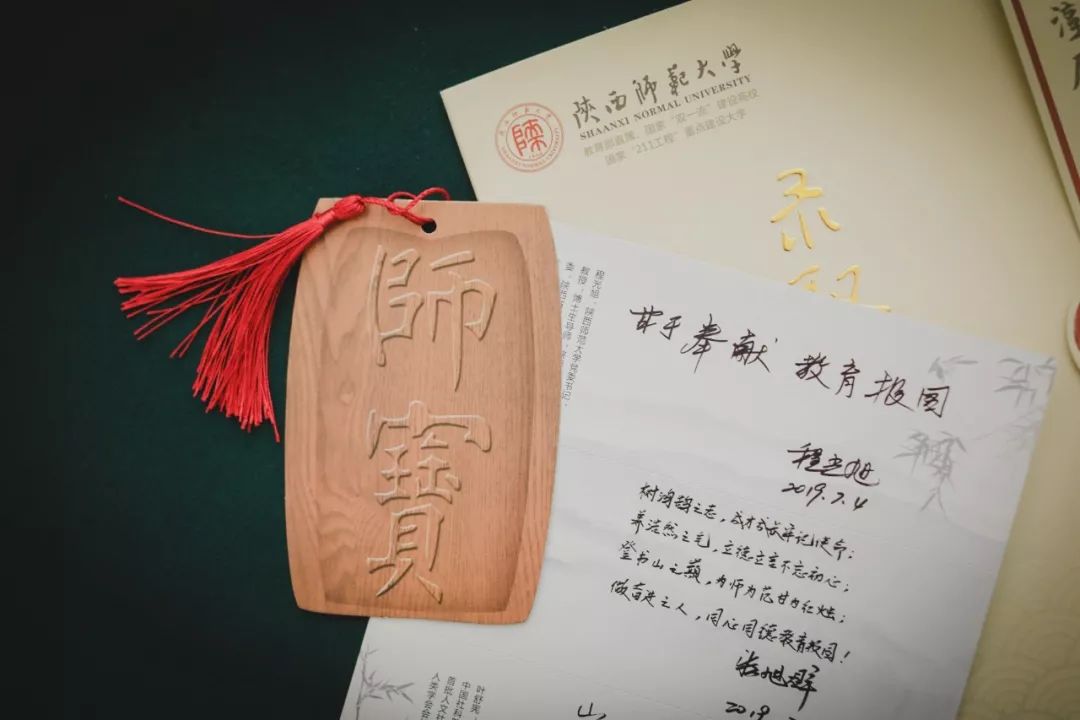 陝西師範大學
SHAANXI NORMAL UNIVERSITY
教育部直属、国家“双一流”建设高校
国家“211工程”重点建设大学
師寶
程光旭，陕西师范大学党委书记，
教授，博士生导师，
甘于奉献 教育报国
程光旭
2019.7.4
树鸿鹄之志，成才成长牢记使命；
养浩然之气，立德立言不忘初心；
登书山之巅，为师为范甘为红烛；
做奋进之人，同心同德教育报国！
2019
叶舒宪
中国社科
首批人文社
人类学会会
山